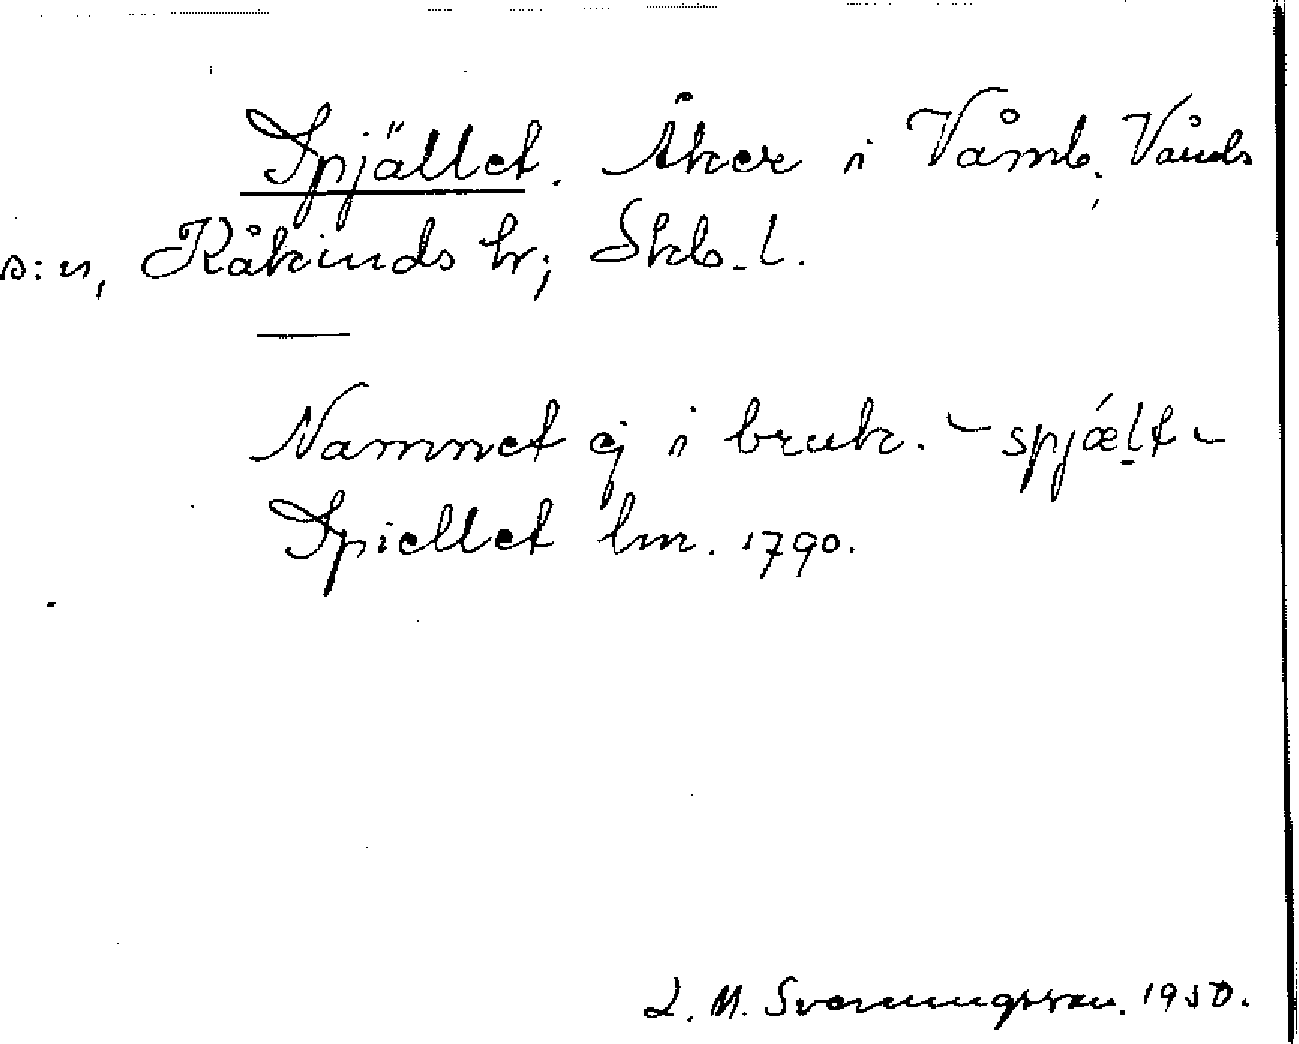 Spjället. Åker i Våmb, Våmbs
s:n, Kåkinds hr; Skbs. l.
Namnet ej i bruk. – spjæ̀lt –
Spiellet lm. 1790.
L. M. Svenungsson. 1930.